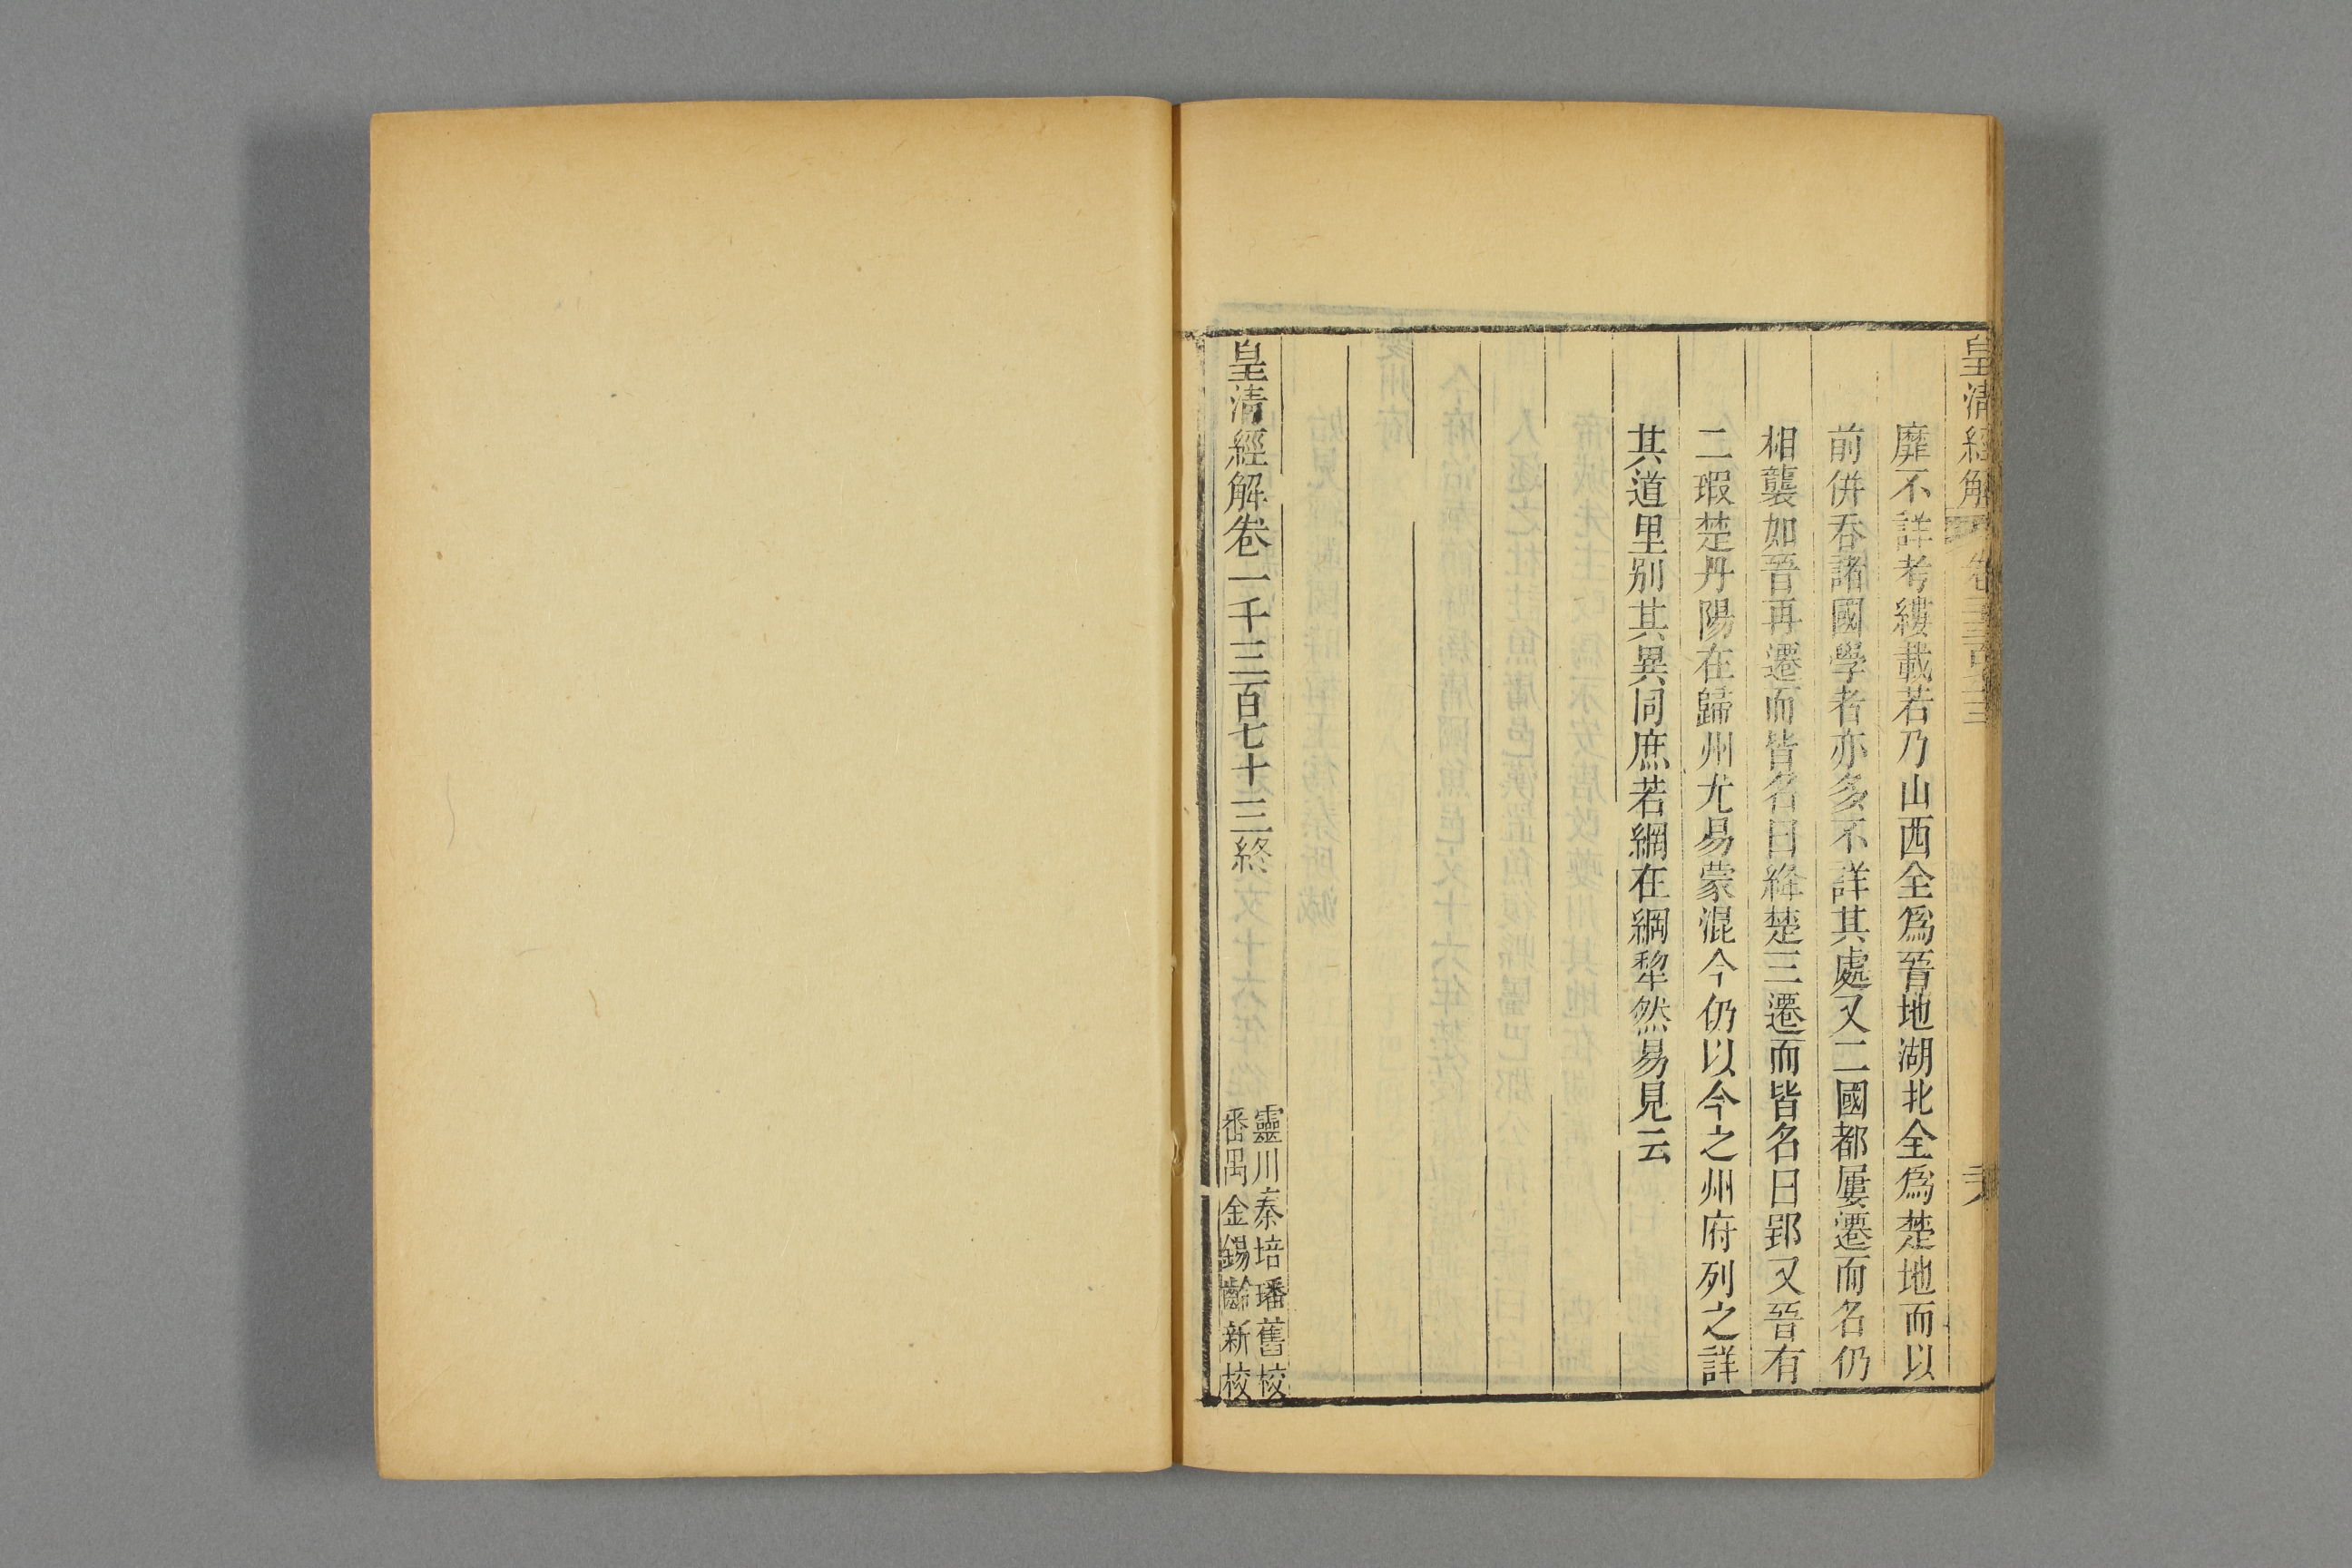 皇清經解
靡不詳考縷載若乃山西全爲晉地湖北全爲楚地而以
前併吞諸國學者亦多不詳其處又二國都屢遷而名仍
相襲如晉再遷而皆名曰絳楚三遷而皆名曰郢又晉有
二瑕楚丹陽在歸州尤易蒙混今仍以今之州府列之詳
其道里别其異同庶若網在綱犂然易見云
皇清經解卷一千三百七十三終
靈川秦培璠舊校
番禺金錫齡新校